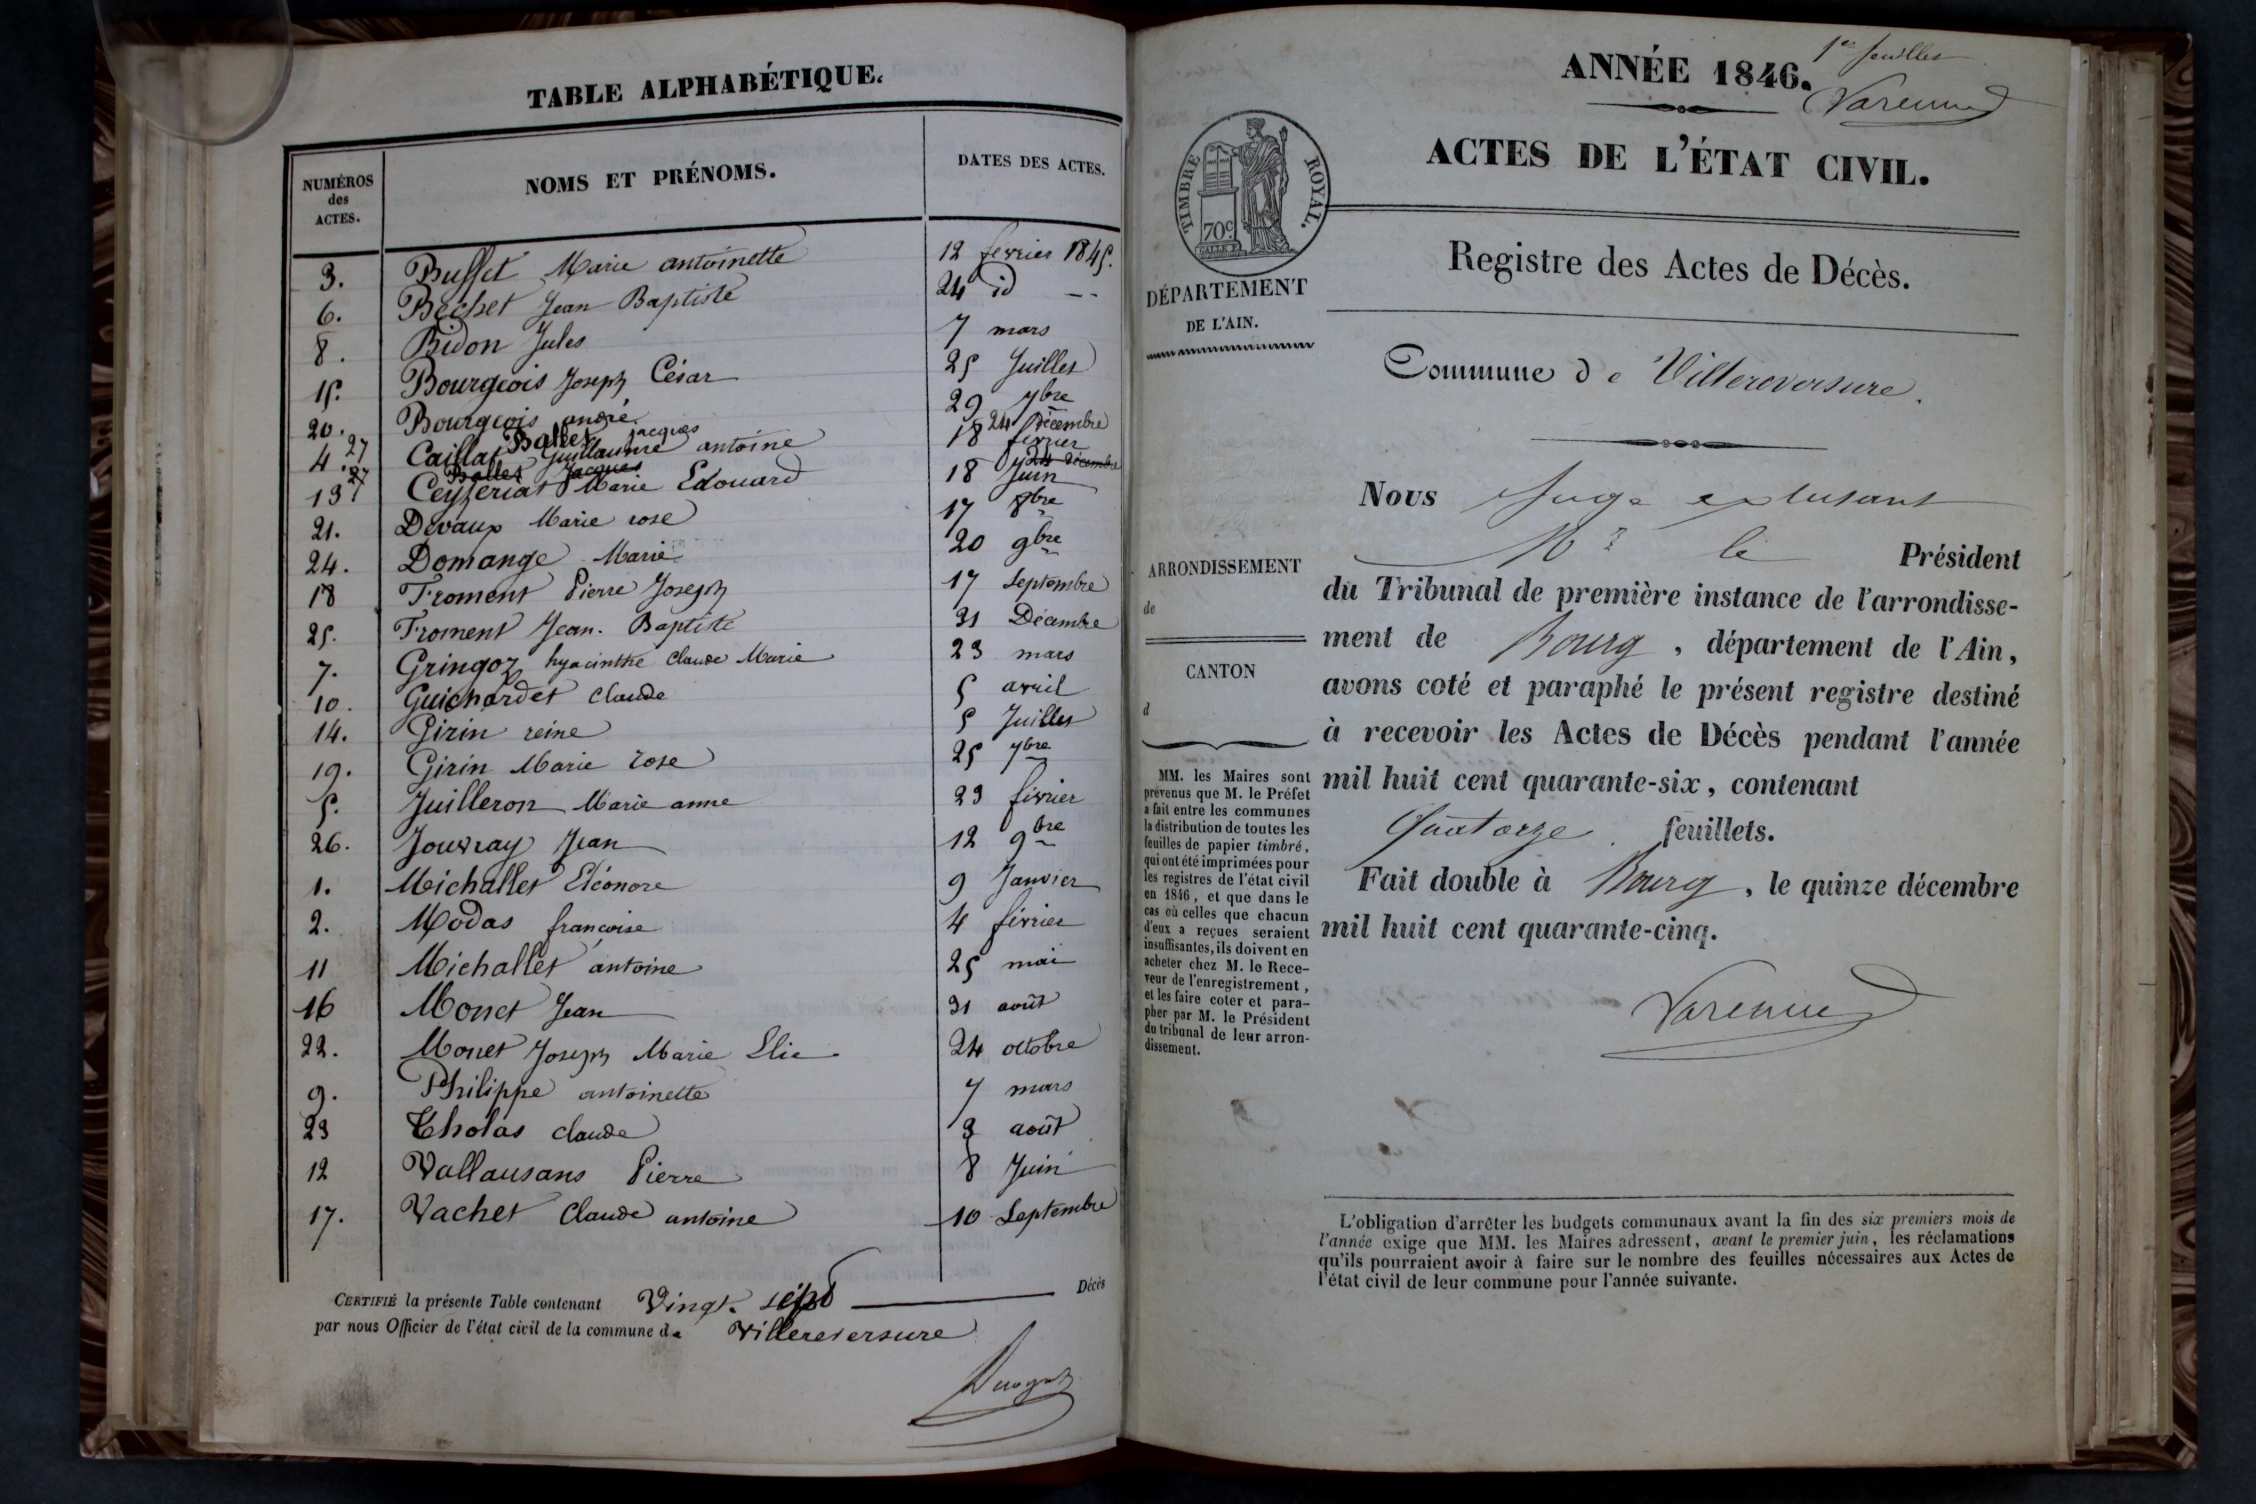 TABLE ALPHABÉTIQUE.
NUMÉROS des ACTES. NOMS ET PRÉNOMS. DATES DES ACTES.
3. Buffet Marie antoinette 12 fevrier 1845.
6. Bechet Jean Baptiste 24 id --
8. Bidon Jules 7 mars
15. Bourgeois Joseph César 25 Juillet
20. Bourgeois andré 29 7bre
27 Ballet Jacques 24 Décembre
4. Caillat Guillaume antoine 18 fevrier
27 Ballet Jacques 24 décembre
13 Ceyzeriat Marie Edouard 18 Juin
21. Devaux Marie rose 17 8bre
24. Domange Marie 20 9bre
18 Froment Pierre Joseph 17 Septembre
25. Froment Jean. Baptiste 31 Décembre
7. Gringoz hyacinthe Claude Marie 23 mars
10. Guichardet Claude 5 avril
14. Girin reine 5 Juillet
19. Girin Marie rose 25 7bre
5. Juilleron Marie anne 23 février
26. Jouvray Jean 12 9bre
1. Michallet Eléonore 9 Janvier
2. Modas françoise 4 février
11 Michallet antoine 25 mai
16 Monet Jean 31 août
22. Monet Joseph Marie Elie 24 octobre
9. Philippe antoinette 7 mars
23 Tholas claude 3 août
12 Vallausans Pierre 8 Juin
17. Vachet Claude antoine 10 Septembre
CERTIFIÉ la présente Table contenant Vingt. sept Décès
par nous Officier de l'état civil de la commune de Villereversure
1er feuillet
ANNÉE 1846.
Varenne
ACTES DE L'ÉTAT CIVIL.
TIMBRE ROYAL.
70c
Registre des Actes de Décès.
DÉPARTEMENT
DE L'AIN.
Commune de Villereversure.
Nous Juge
Mr le Président
du Tribunal de première instance de l'arrondisse-
ment de Bourg, département de l'Ain,
avons coté et paraphé le présent registre destiné
à recevoir les Actes de Décès pendant l'année
mil huit cent quarante-six, contenant
Quatorze feuillets.
Fait double à Bourg, le quinze décembre
mil huit cent quarante-cinq.
Varenne
ARRONDISSEMENT
de
CANTON
d
MM. les Maires sont
prévenus que M. le Préfet
a fait entre les communes
la distribution de toutes les
feuilles de papier timbré,
qui ont été imprimées pour
les registres de l'état civil
en 1846, et que dans le
cas où celles que chacun
d'eux a reçues seraient
insuffisantes, ils doivent en
acheter chez M. le Rece-
veur de l'enregistrement,
et les faire coter et para-
pher par M. le Président
du tribunal de leur arron-
dissement.
L'obligation d'arrêter les budgets communaux avant la fin des six premiers mois de
l'année exige que MM. les Maires adressent, avant le premier juin, les réclamations
qu'ils pourraient avoir à faire sur le nombre des feuilles nécessaires aux Actes de
l'état civil de leur commune pour l'année suivante.